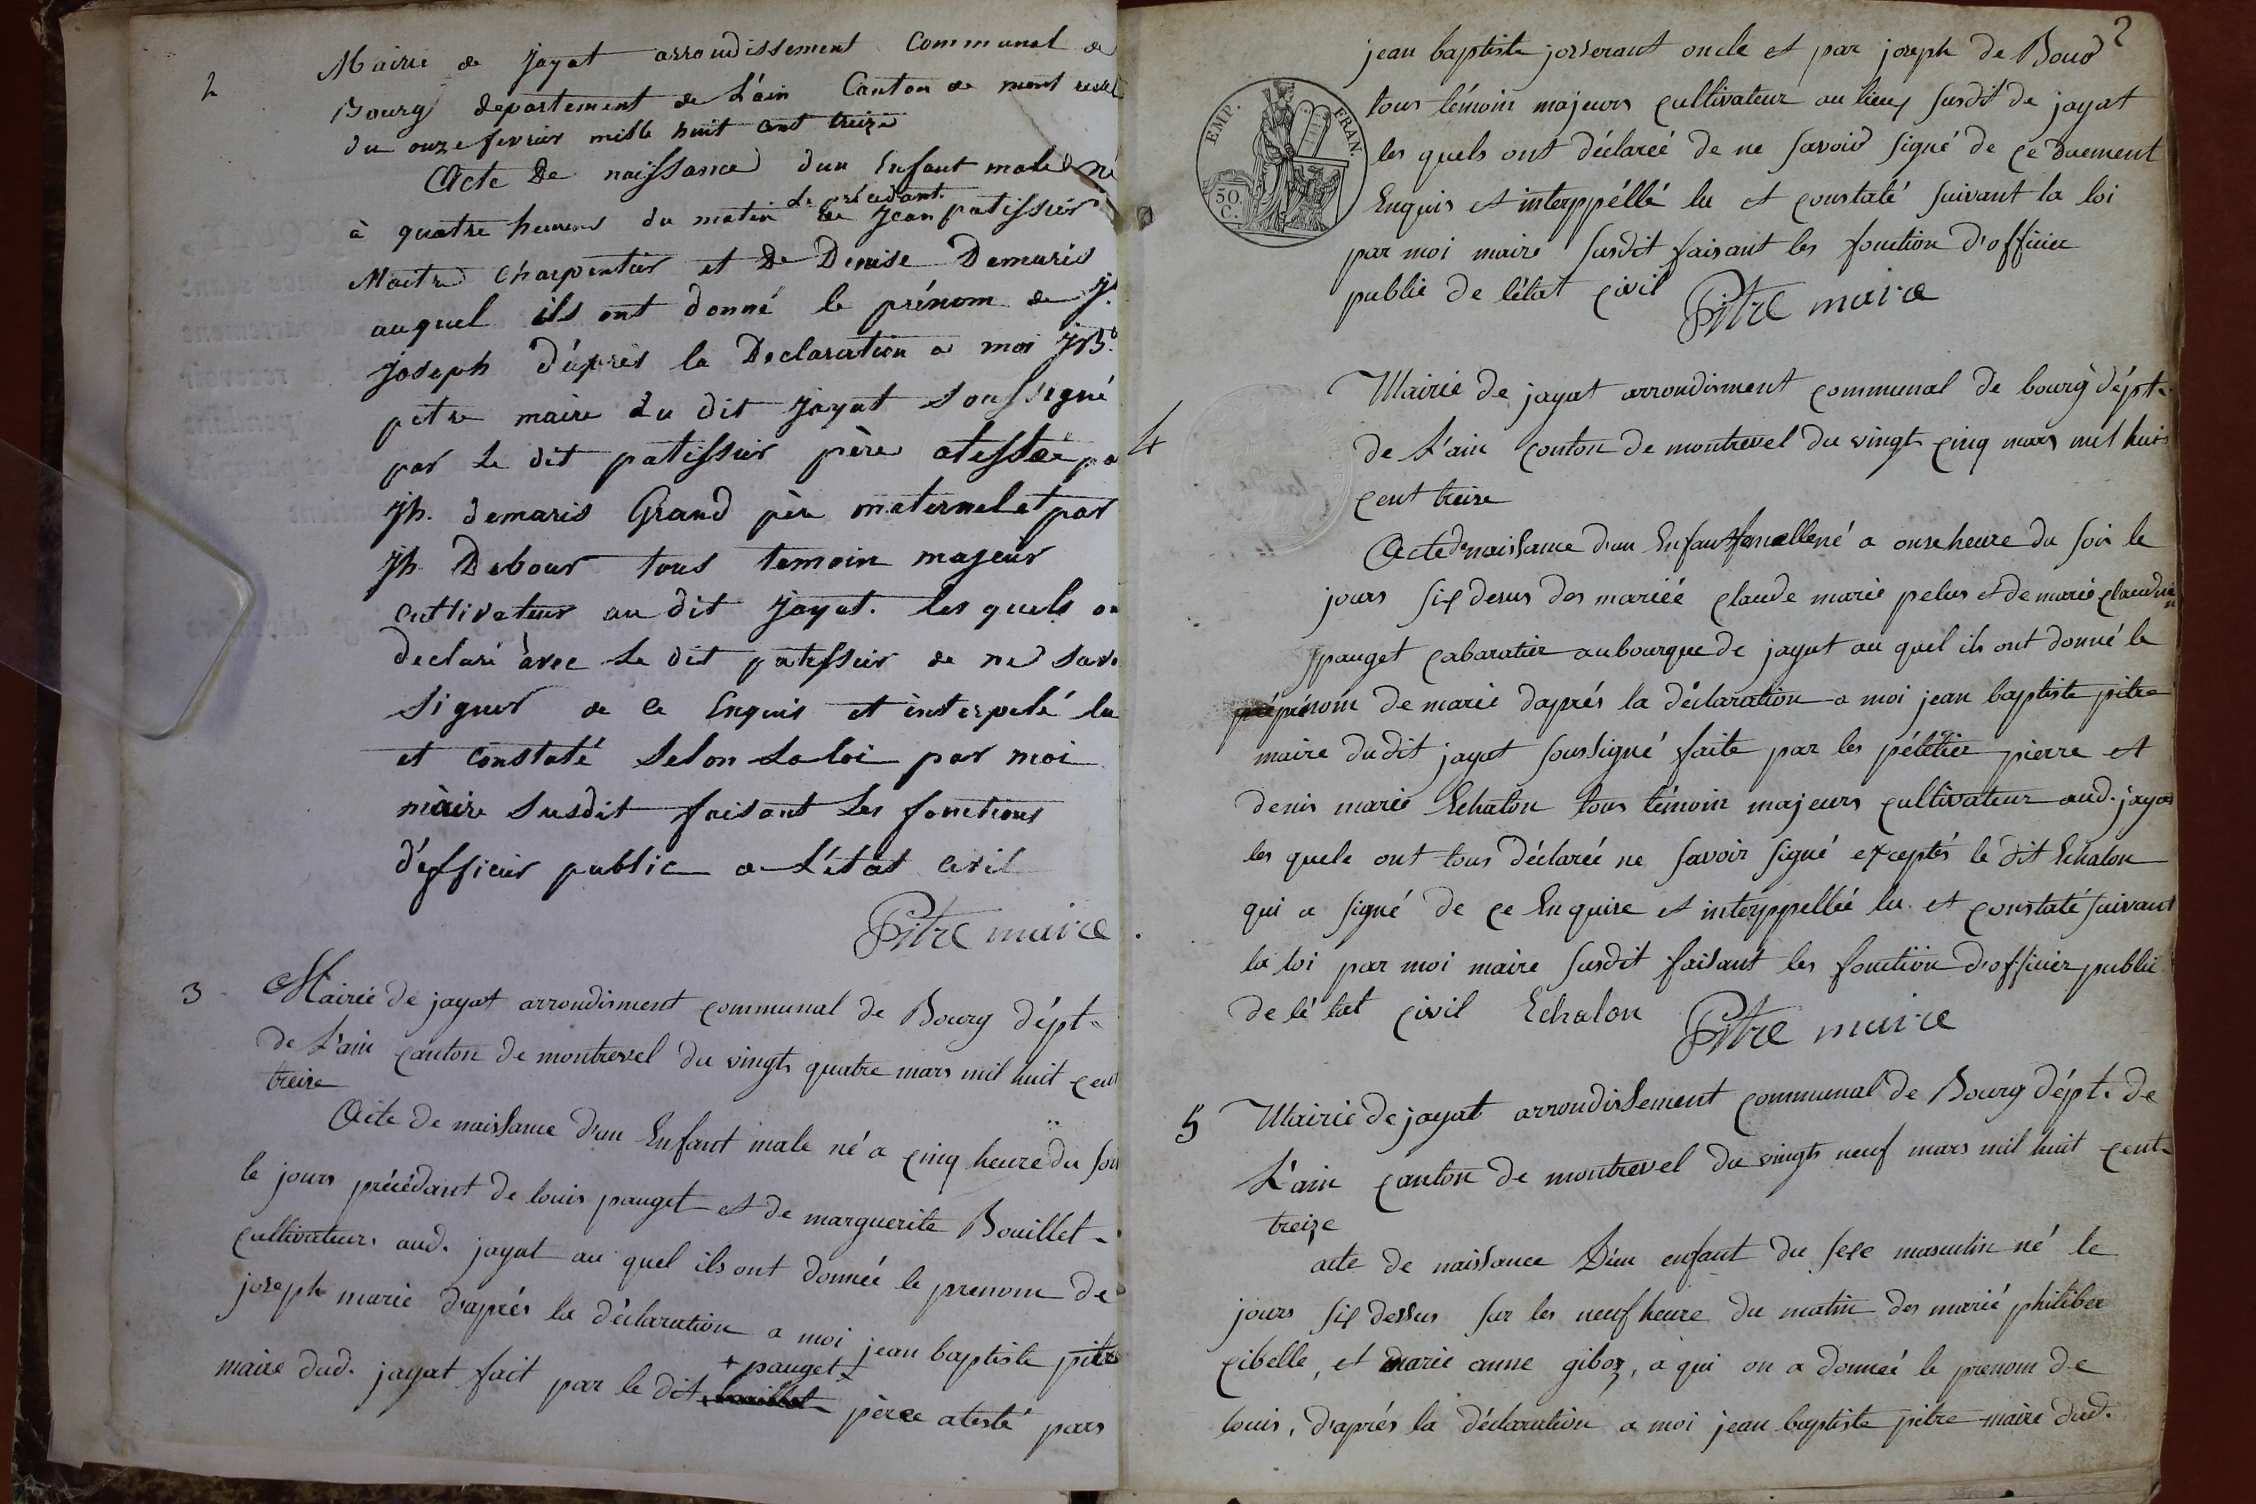 2
Mairie de Jayat arrondissement Communal de
Bourg departement de L'ain Canton de mont revel
du onze fevrier mille huit cent treize
Acte De naissance d'un Enfant male né
à quatre heures du matin de Jean patissier
le précédant
Maitre Charpentier et De Denise Demaris
auquel ils ont donné le prénom de
Joseph d'après la Declaration a moi JB.
pitre maire du dit Jayat Soussigné
par Le dit patissier père atestée
Jh. demaris Grand père maternel et par
Jh Debour tous temoin majeur
Cultivateur au dit Jayat. les quels
declaré avec Le dit patissier de ne
Signer de ce Enquis et interpelé lu
et Constaté Selon La loi par moi
maire Susdit faisant Les fonctions
d'officier public a L'état civil
Pitre maire
3
Mairie de jayat arrondisment communal de Bourg dépt.
de L'ain canton de montrevel du vingts quatre mars mil huit cent
treize
Acte de naissance d'un Enfant male né a cinq heure du soir
le jours précédant de louis pauget et de marguerite Bouillet
cultivateur. aud. jayat au quel ils ont donnée le prenom de
joseph marie d'aprés la déclaration a moi jean baptiste pitre
+ pauget +
maire dud. jayat fait par le dit père atesté pars
2
jean baptiste josserant oncle et par joseph de Bour
tous témoin majeurs cultivateur au lieux susdit de jayat
les quels ont déclareé de ne savoir signé de ce duement
Enquis et interppéllé lu et constaté suivant la loi
par moi maire susdit faisant les fonction d'officier
public de l'état civil
Pitre maire
EMP. FRAN.
50 C.
4
Mairie de jayat arrondisment communal de bourg dépt.
de L'ain conton de montrevel du vingts cinq mars mil huit
cent treize
Acte de naissance d'un Enfant femelle né a onze heure du soir le
jours six desus des mariéé claude marie pelus et de marie claudine
pauget cabaratier au bourque de jayat au quel ils ont donné le
prénom de marie d'aprés la déclaration a moi jean baptiste pitre
maire du dit jayat soussigné faite par les pierre et
denis marie Echalon tous témoin majeurs cultivateur aud. jayat
les quele ont tous déclareé ne savoir signé exceptés le dit Echalon
qui a signé de ce Enquise et interppelleé lu et constaté suivant
la loi par moi maire susdit faisant les fonction d'officier public
de lé tat civil Echalon
Pitre maire
5
Mairie de jayat arrondissement communal de Bourg dépt. de
L'ain canton de montrevel du vingts neuf mars mil huit cent
treize
acte de naissance D'un enfant du sexe masculin né le
jours six dessus sur les neuf heure du matin des marié philiber
cibelle, et marie anne giboz, a qui on a donneé le prenom de
louis, d'aprés la déclaration a moi jean baptiste pitre maire dud.